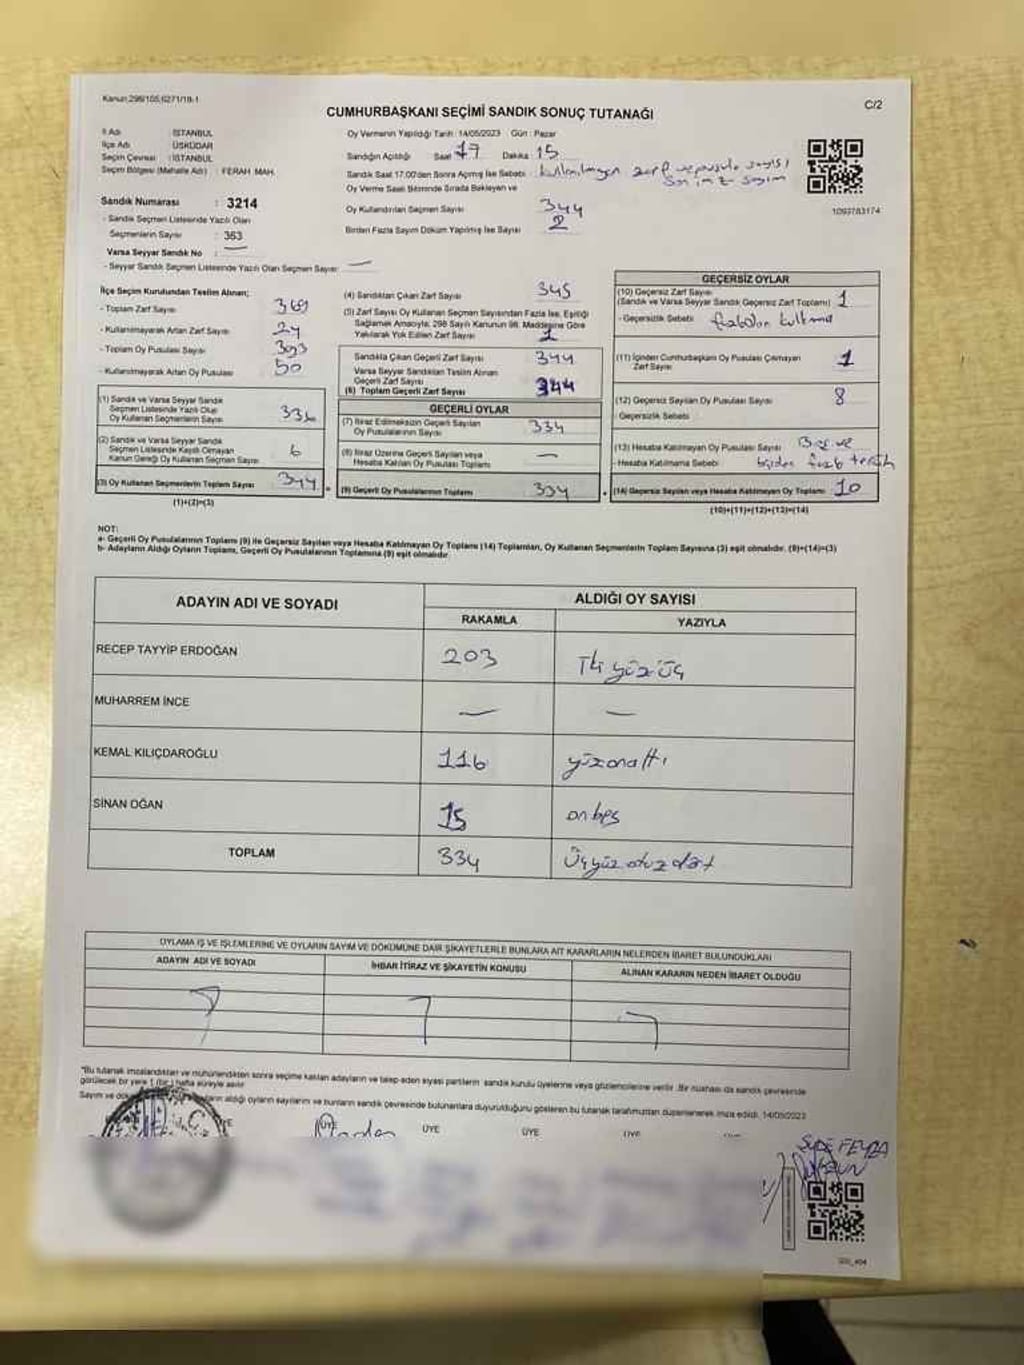 Kanun,298/105,6271/19-1
C/2
CUMHURBAŞKANI SEÇİMİ SANDIK SONUÇ TUTANAĞI
İl Adı : İSTANBUL
İlçe Adı : ÜSKÜDAR
Seçim Çevresi : İSTANBUL
Seçim Bölgesi (Mahalle Adı) : FERAH MAH.
Sandık Numarası : 3214
- Sandık Seçmen Listesinde Yazılı Olan
Seçmenlerin Sayısı : 363
Varsa Seyyar Sandık No : —
- Seyyar Sandık Seçmen Listesinde Yazılı Olan Seçmen Sayısı: —
Oy Vermenin Yapıldığı Tarih :14/05/2023 Gün : Pazar
Sandığın Açıldığı Saat 17 Dakika : 15
Sandık Saat 17:00'den Sonra Açılmış İse Sebebi : kullanılmayan zarf ve pusula sayısı
Oy Verme Saati Bitiminde Sırada Bekleyen ve
Oy Kullandırılan Seçmen Sayısı 344
Birden Fazla Sayım Döküm Yapılmış İse Sayısı 2
1093783174
İlçe Seçim Kurulundan Teslim Alınan;
- Toplam Zarf Sayısı 369
- Kullanılmayarak Artan Zarf Sayısı 24
- Toplam Oy Pusulası Sayısı 393
- Kullanılmayarak Artan Oy Pusulası 50
(1) Sandık ve Varsa Seyyar Sandık
Seçmen Listesinde Yazılı Olup
Oy Kullanan Seçmenlerin Sayısı
(2) Sandık ve Varsa Seyyar Sandık
Seçmen Listesinde Kayıtlı Olmayan
Kanun Gereği Oy Kullanan Seçmen Sayısı 6
(3) Oy Kullanan Seçmenlerin Toplam Sayısı 344
(1)+(2)=(3)
(4) Sandıktan Çıkan Zarf Sayısı 345
(5) Zarf Sayısı Oy Kullanan Seçmen Sayısından Fazla İse, Eşitliği
Sağlamak Amacıyla; 298 Sayılı Kanunun 98. Maddesine Göre
Yakılarak Yok Edilen Zarf Sayısı 1
Sandıkta Çıkan Geçerli Zarf Sayısı 344
Varsa Seyyar Sandıktan Teslim Alınan
Geçerli Zarf Sayısı
(6) Toplam Geçerli Zarf Sayısı 344
GEÇERLİ OYLAR
(7) İtiraz Edilmeksizin Geçerli Sayılan
Oy Pusulalarının Sayısı 334
(8) İtiraz Üzerine Geçerli Sayılan veya
Hesaba Katılan Oy Pusulası Toplamı —
(9) Geçerli Oy Pusulalarının Toplamı 334
GEÇERSİZ OYLAR
(10) Geçersiz Zarf Sayısı
(Sandık ve Varsa Seyyar Sandık Geçersiz Zarf Toplamı) 1
- Geçersizlik Sebebi
(11) İçinden Cumhurbaşkanı Oy Pusulası Çıkmayan
Zarf Sayısı 1
(12) Geçersiz Sayılan Oy Pusulası Sayısı 8
- Geçersizlik Sebebi
(13) Hesaba Katılmayan Oy Pusulası Sayısı
- Hesaba Katılmama Sebebi birden fazla tercih
(14) Geçersiz Sayılan veya Hesaba Katılmayan Oy Toplamı 10
(10)+(11)+(12)+(13)=(14)
NOT:
a- Geçerli Oy Pusulalarının Toplamı (9) ile Geçersiz Sayılan veya Hesaba Katılmayan Oy Toplamı (14) Toplamları, Oy Kullanan Seçmenlerin Toplam Sayısına (3) eşit olmalıdır. (9)+(14)=(3)
b- Adayların Aldığı Oyların Toplamı, Geçerli Oy Pusulalarının Toplamına (9) eşit olmalıdır.
ADAYIN ADI VE SOYADI
ALDIĞI OY SAYISI
RAKAMLA YAZIYLA
RECEP TAYYİP ERDOĞAN 203 İki yüz üç
MUHARREM İNCE — —
KEMAL KILIÇDAROĞLU 116 yüzonaltı
SİNAN OĞAN 15 onbeş
TOPLAM 334 Üçyüz otuz dört
OYLAMA İŞ VE İŞLEMLERİNE VE OYLARIN SAYIM VE DÖKÜMÜNE DAİR ŞİKAYETLERLE BUNLARA AİT KARARLARIN NELERDEN İBARET BULUNDUKLARI
ADAYIN ADI VE SOYADI İHBAR İTİRAZ VE ŞİKAYETİN KONUSU ALINAN KARARIN NEDEN İBARET OLDUĞU
*Bu tutanak imzalandıktan ve mühürlendikten sonra seçime katılan adayların ve talep eden siyasi partilerin sandık kurulu üyelerine veya gözlemcilerine verilir. Bir nüshası da sandık çevresinde
görülecek bir yere 1 (bir) hafta süreyle asılır.
Sayım ve aldığı oyların sayılarını ve bunların sandık çevresinde bulunanlara duyurulduğunu gösteren bu tutanak tarafımızdan düzenlenerek imza edildi. 14/05/2023
ÜYE ÜYE ÜYE ÜYE
FEYZA